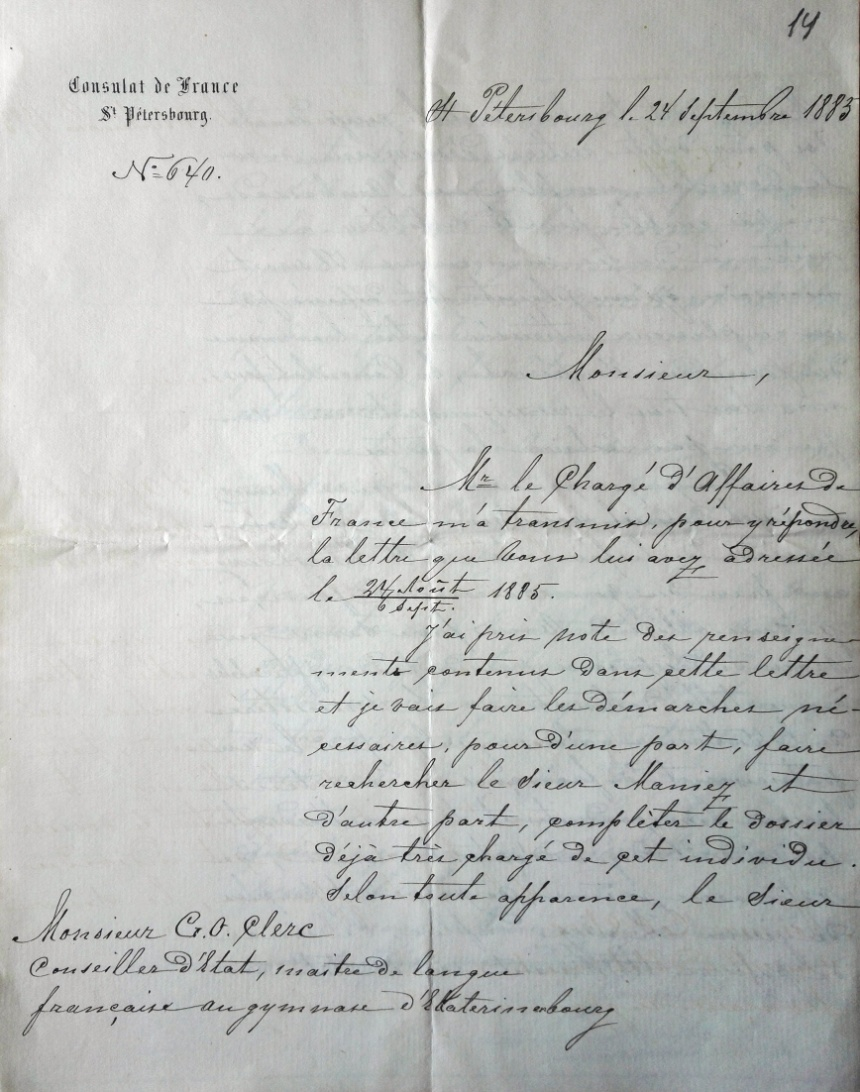 14
Consulat de France
St Pétersbourg.
No 640.
St Pétersbourg le 24 Septembre 1885
Monsieur,
Mr le Chargé d'Affaires de
France m'a transmis, pour y répondre,
la lettre que vous lui avez adressée
le 24 Août / 6 Sept. 1885.
J'ai pris note des renseigne-
ments contenus dans cette lettre
et je vais faire les démarches né-
cessaires, pour d'une part, faire
rechercher le Sieur Maniez et
d'autre part, compléter le dossier
déjà très chargé de cet individu.
Selon toute apparence, le Sieur
Monsieur G. O. Clerc
Conseiller d'Etat, maître de langue
française au gymnase d'Ekaterinebourg